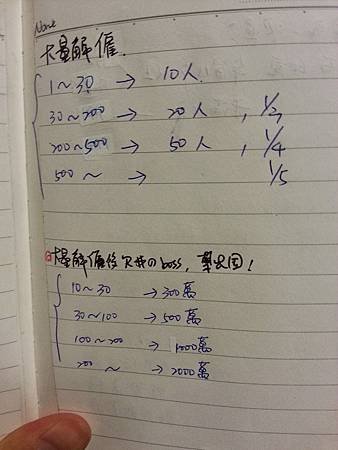 None
大量解僱.
1～30 → 10人.
30～200 → 20人, 1/3,
200～500 → 50人, 1/4
500～ → 1/5
大量解僱後欠錢の boss, 禁出國!
10～30 → 300萬
30～100 → 500萬
100～200 → 1000萬
200～ → 2000萬